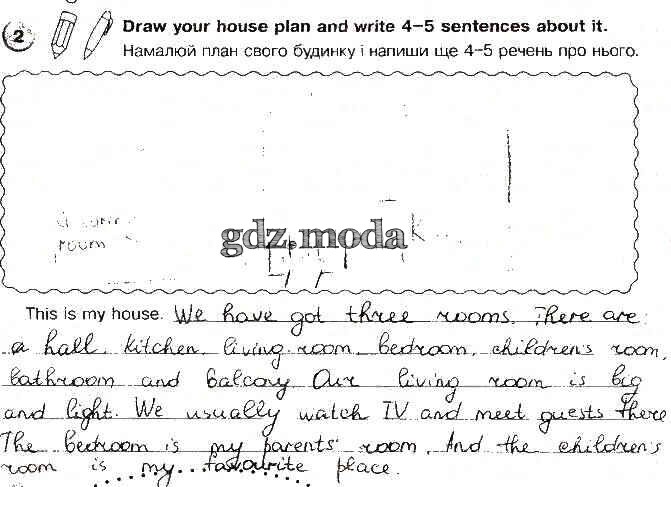 2 Draw your house plan and write 4–5 sentences about it.
Намалюй план свого будинку і напиши ще 4–5 речень про нього.
room
gdz.moda
This is my house. We have got three rooms. There are:
a hall, kitchen, living-room, bedroom, children's room,
bathroom and balcony. Our living room is big
and light. We usually watch TV and meet guests there.
The bedroom is my parents' room. And the children's
room is my favourite place.